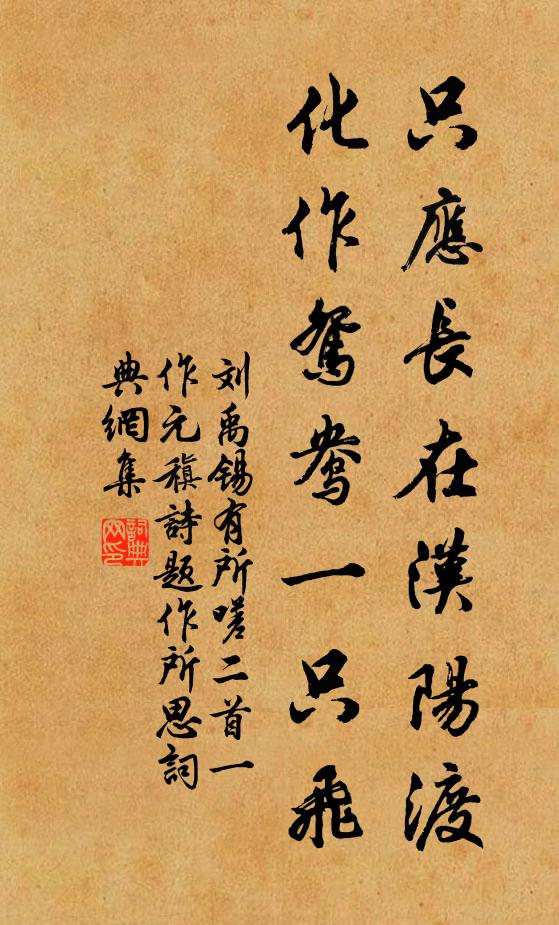 只應長在漢陽渡
化作鴛鴦一只飛
刘禹锡有所嗟二首一
作元稹詩题作所思詞
典網集
詞典
网印